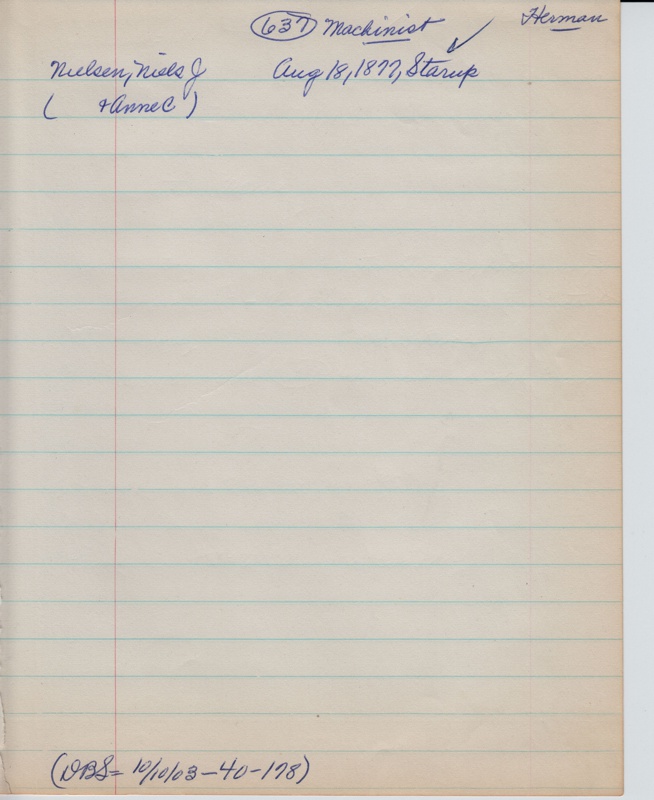 637 Machinist Herman
Nielsen, Niels J Aug 18, 1877, Starup
( + Anne C )
(DBS= 10/10/03-40-178)